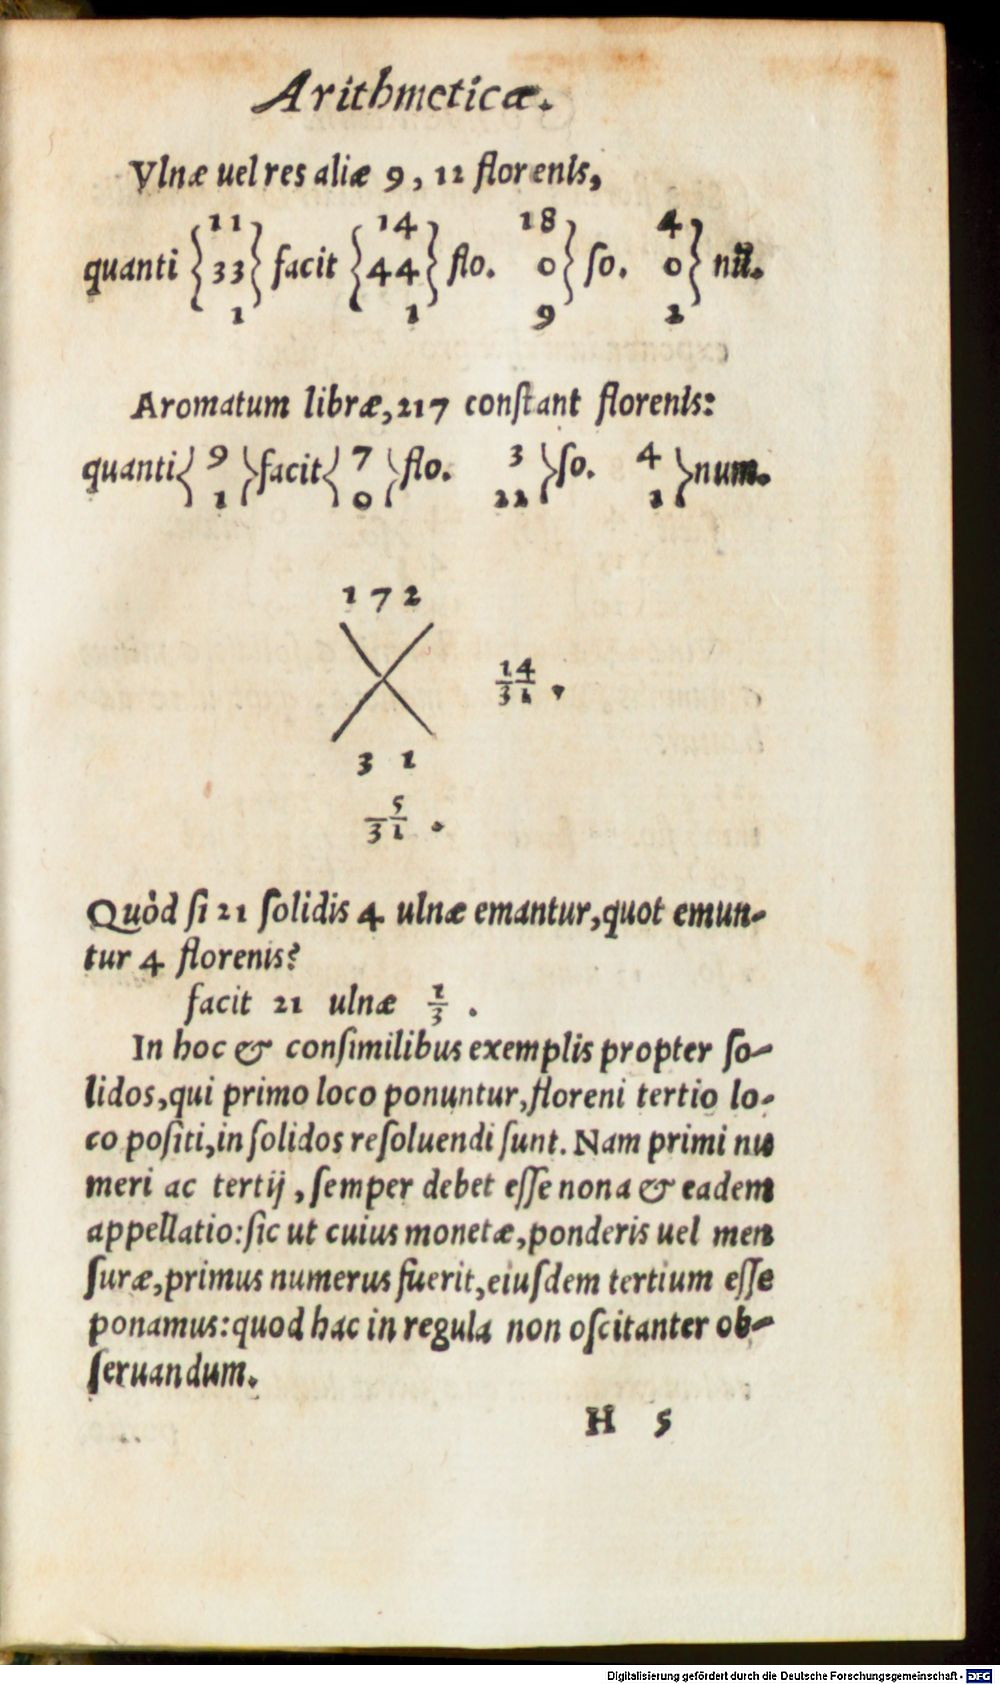 Arithmeticæ.
Vlnæ uel res aliæ 9, 12 florenis,
11 14 18 4
quanti { 33 } facit { 44 } flo. 0 } so. 0 } nũ.
1 1 9 2
Aromatum libræ, 217 constant florenis:
quanti { 9 } facit { 7 } flo. 3 } so. 4 } num.
1 0 22 2
1 7 2
14/31 .
3 1
5/31 .
Quòd si 21 solidis 4 ulnæ emantur, quot emun-
tur 4 florenis?
facit 21 ulnæ 1/3 .
In hoc & consimilibus exemplis propter so-
lidos, qui primo loco ponuntur, floreni tertio lo-
co positi, in solidos resoluendi sunt. Nam primi nu
meri ac tertij, semper debet esse nona & eadem
appellatio: sic ut cuius monetæ, ponderis uel men
suræ, primus numerus fuerit, eiusdem tertium esse
ponamus: quod hac in regula non oscitanter ob-
seruandum.
H 5
Digitalisierung gefördert durch die Deutsche Forschungsgemeinschaft - DFG